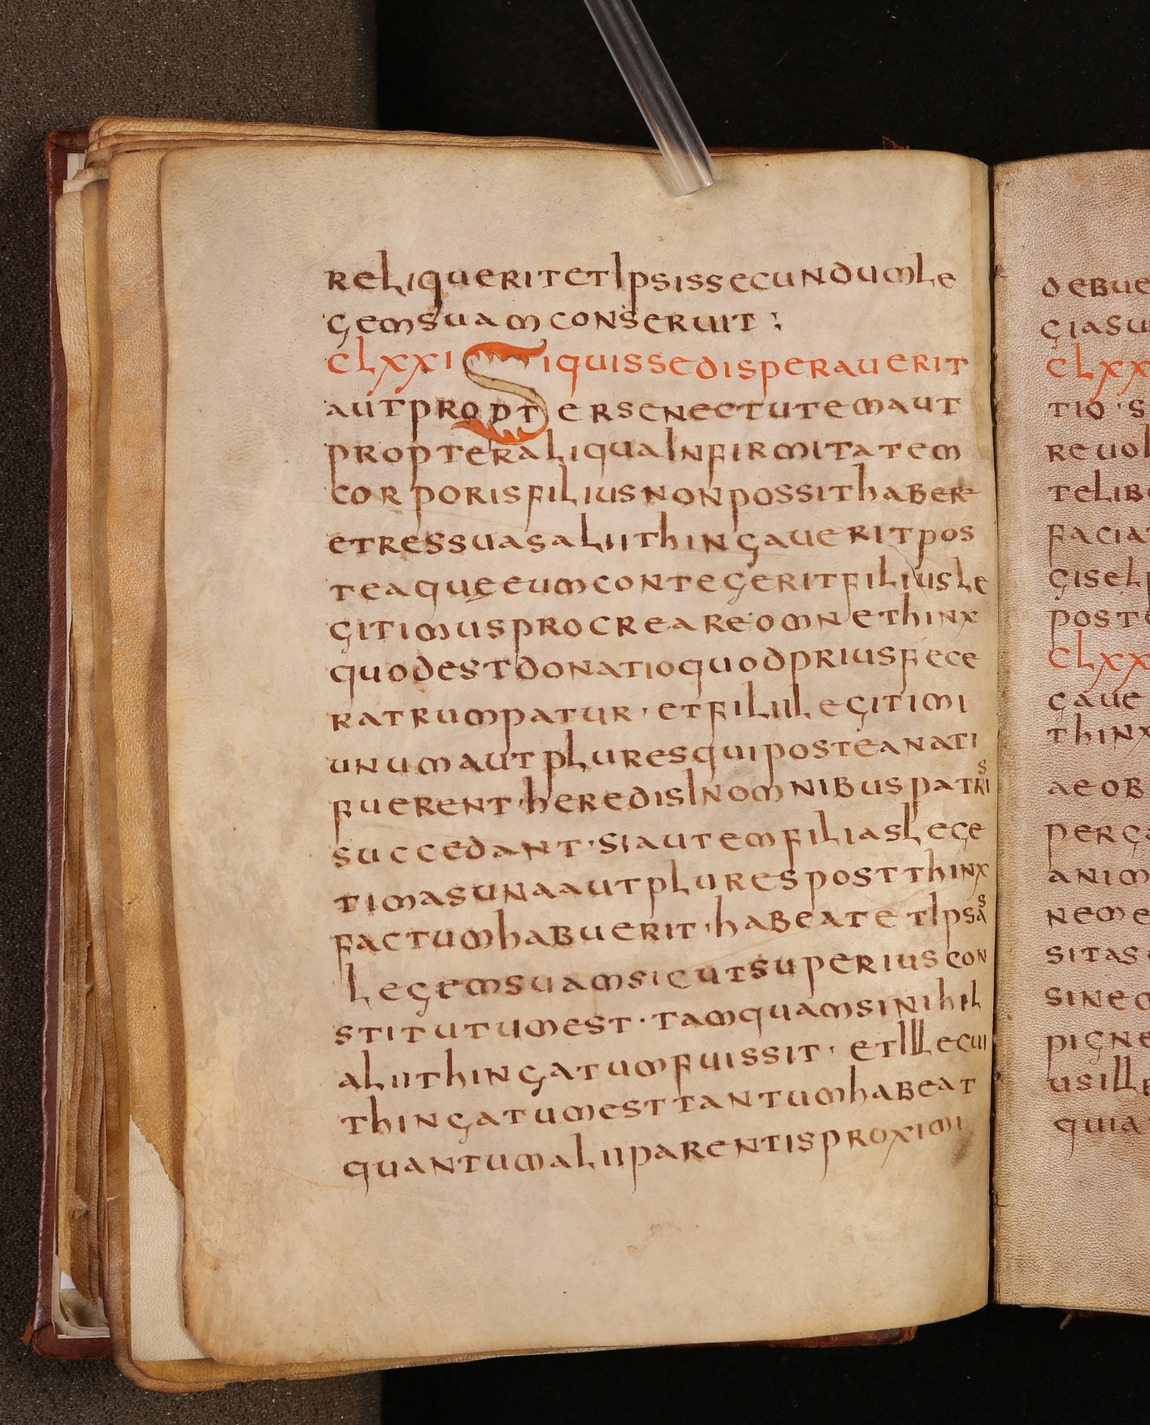 reliqueritetipsissecundumle
gemsuamconseruit ;
clxxi Siquissedisperauerit
autpropterscenectutemaut
propteraliquainfirmitatem
corporisfiliusnonpossithaber
etressuasaliithingaueritpos
teaqueeumcontegeritfiliusle
gitimusprocreare·omnethinx
quodestdonatioquodpriusfece
ratrumpatur · etfiliilegitimi
unumautpluresquiposteanati
fuerent·heredisinomnibuspatris
succedant · siautemfiliaslege
timasunaautplurespostthinx
factumhabuerit · habeatetipsas
legemsuamsicutsuperiuscon
stitutumest · tamquamsinihil
aliithingatumfuissit · etillecui
thingatumesttantumhabeat
quantumaliiparentisproximi
debue
giasu
clxx
tio · s
reuol
telibe
facia
gisel
poste
clxx
gaue
thinx
aeob
perga
anim
neme
sitas
sine
pigne
usille
quia